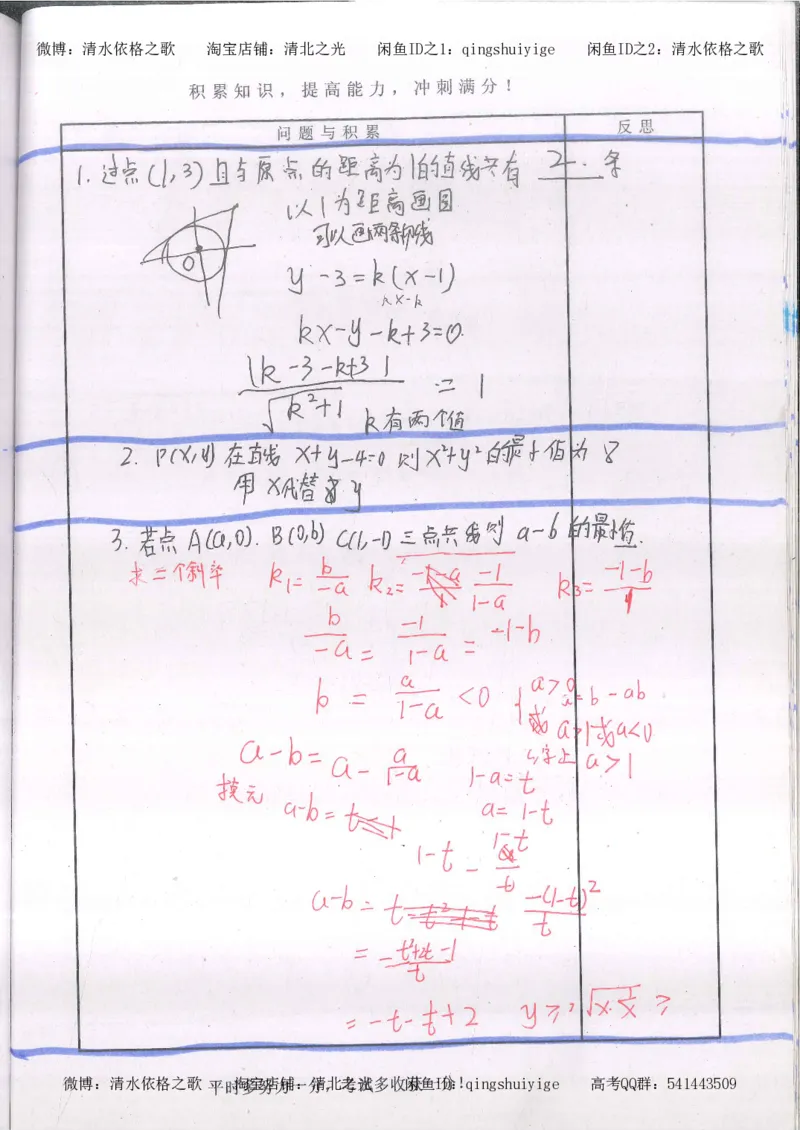 微博：清水依格之歌 淘宝店铺：清北之光 闲鱼ID之1：qingshuiyige 闲鱼ID之2：清水依格之歌
积累知识，提高能力，冲刺满分！
问题与积累 反思
1. 过点(1,3)且与原点的距离为1的直线共有 2 . 条
以1为距离画圆
可以画两条切线
O
y-3=k(x-1)
kx-k
kx-y-k+3=0
|k-3-k+3| / √(k²+1) = 1
k有两个值
2. P(x,y)在直线 x+y-4=0 则x²+y²的最小值为 8
用 x代替 y
3. 若点A(a,0). B(0,b) C(1,-1)三点共线则 a-b的最小值.
求三个斜率 k₁= b/-a k₂= -1/1-a k₃= -1-b/1
b/-a = -1/1-a = -1-b
b = a/1-a <0 { a>0 a=b-ab
或 a>1或a<0
综上 a>1
a-b= a- a/1-a 1-a=t
换元 a-b= a=1-t
1-t - 1-t/t
a-b= -(1-t)²/t
= - t²+2t-1/t
= -t-1/t+2 y≥2√x·1/x ≥
微博：清水依格之歌 淘宝店铺：清北之光 闲鱼ID：qingshuiyige 高考QQ群：541443509
平时多努力一分，考试多收获一份！